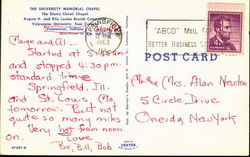 THE UNIVERSITY MEMORIAL CHAPEL
The Gloria Christi Chapel
August H. and Ella Louise Brandt Campus
Valparaiso University, East Campus
Valparaiso, Indiana
1963
"ABCD" MAIL
BETTER BUSINESS
POST CARD
Marge and Al -
Started at 8:30 am
and stopped 4:30 p.m.
standard time
Springfield, Ill.
and St. Louis Mo
tomorrow. But not
quite so many miles
Very hot from noon
on. Love
Be, Bill, Bob
Mr. & Mrs. Alan Newton
5 Circle Drive
Oneida New York
DEXTER